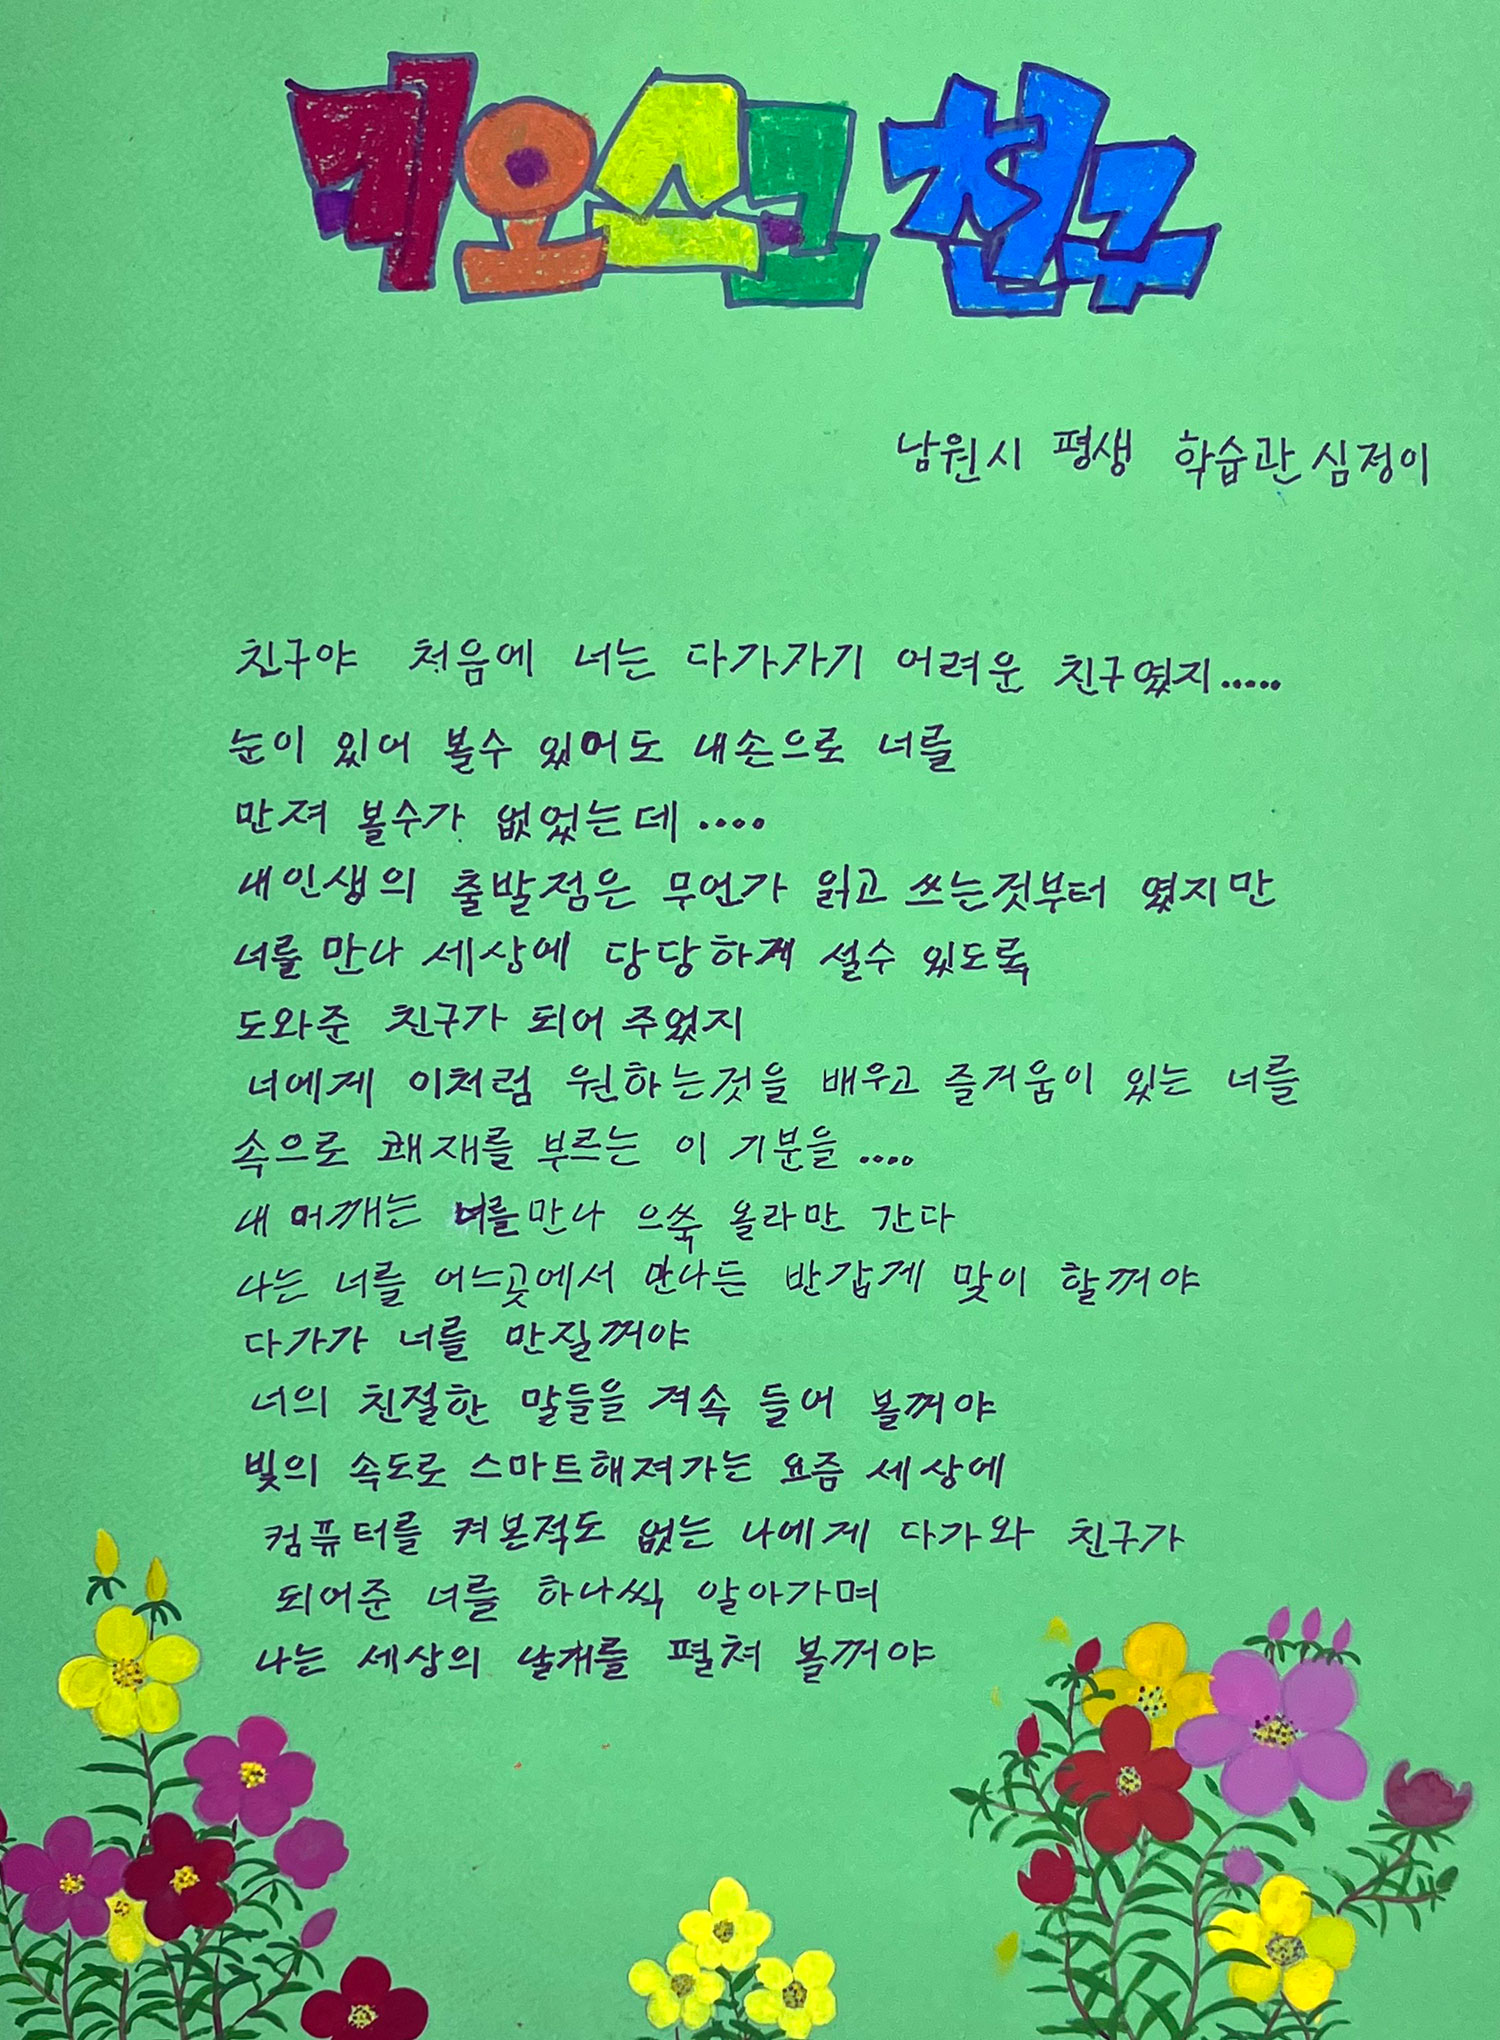 키오스크 친구
남원시 평생 학습관 심정이
친구야 처음에 너는 다가가기 어려운 친구였지.....
눈이 있어 볼수 있어도 내손으로 너를
만져 볼수가 없었는데....
내인생의 출발점은 무언가 읽고 쓰는것부터 였지만
너를 만나 세상에 당당하게 설수 있도록
도와준 친구가 되어 주었지
너에게 이처럼 원하는것을 배우고 즐거움이 있는 너를
속으로 쾌재를 부르는 이 기분을....
내 어깨는 너를만나 으쓱 올라만 간다
나는 너를 어느곳에서 만나든 반갑게 맞이 할꺼야
다가가 너를 만질꺼야
너의 친절한 말들을 겨속 들어 볼꺼야
빛의 속도로 스마트해져가는 요즘 세상에
컴퓨터를 켜본적도 없는 나에게 다가와 친구가
되어준 너를 하나씩 알아가며
나는 세상의 날개를 펼쳐 볼꺼야